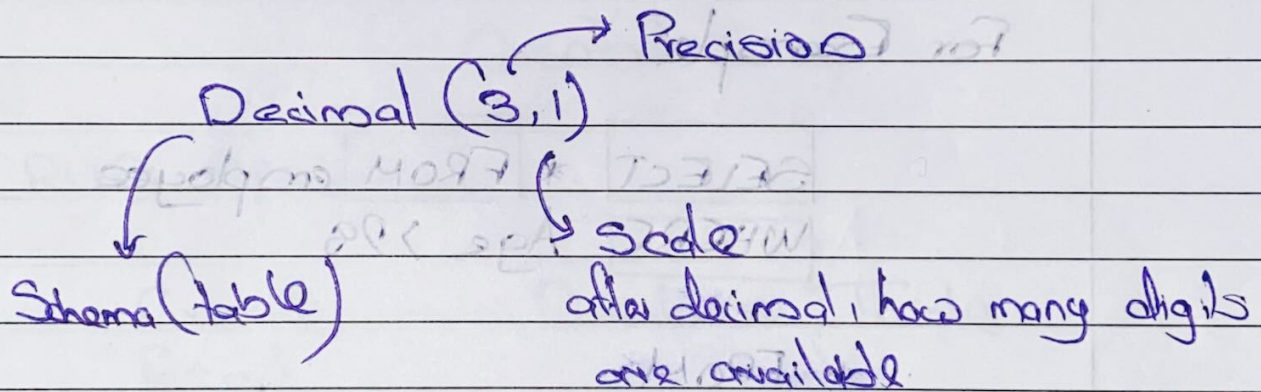 Precision
Decimal (3,1)
Scale
Schema (table)
after decimal, how many digits
are available